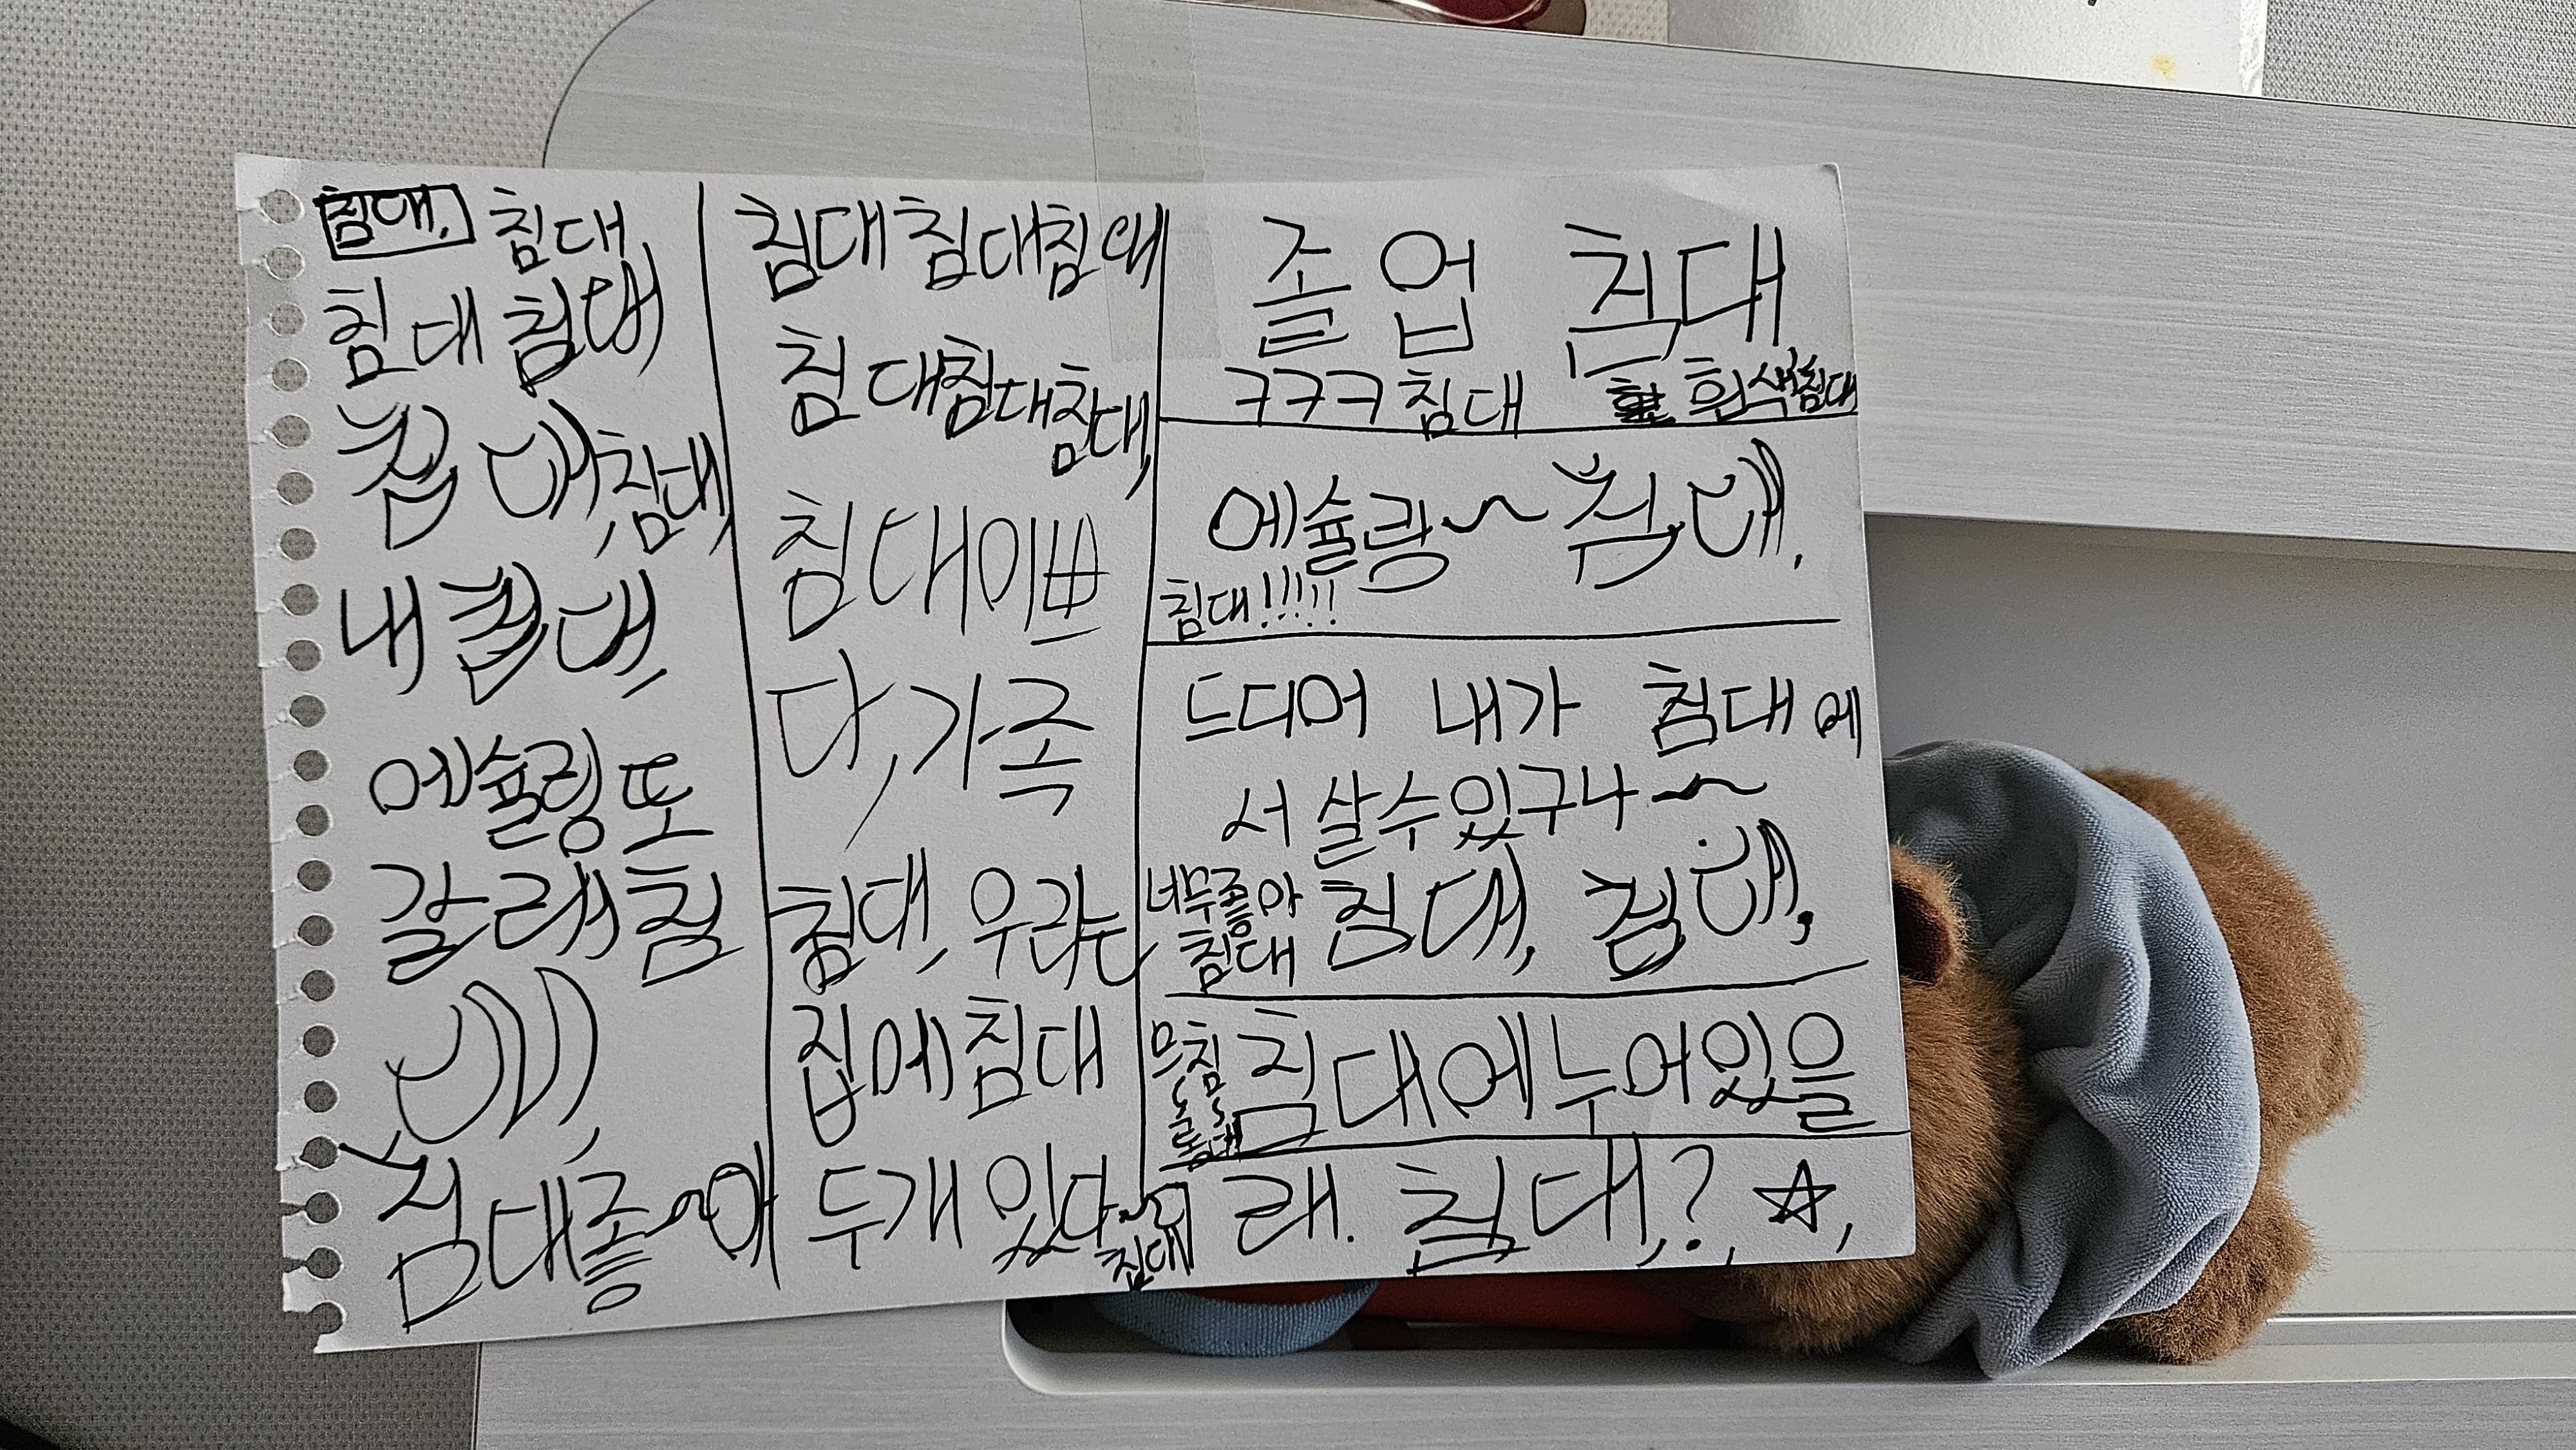 침대, 침대,
침대 침대
침대, 침대,
내 침대,
에슐링 또
갈래 침
대,
침대좋~아
침대 침대 침대
침대 침대 침대,
침대이쁘
다, 가족
침대, 우리는
집에 침대
두개 있다~
침대
졸업 침대
ㅋㅋㅋ 침대 흰색침대
에슐랑~ 침대,
침대!!!!!
드디어 내가 침대에
서 살수있구나~
너무좋아
침대
침대, 침대,
침대에누어있을
래. 침대,? ☆,